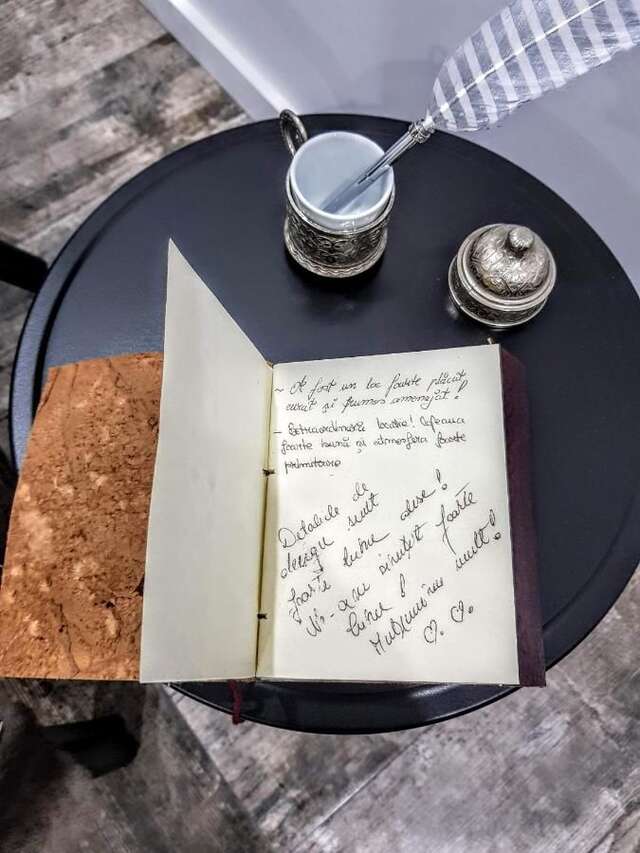 ~ A fost un loc foarte plăcut
curat și frumos amenajat!
- Extraordinară locație! Cafeaua
foarte bună și atmosfera foarte
primitoare
Detaliile de
design sunt
foarte bine alese!
Ne-am simțit foarte
bine!
Mulțumim mult!
♡. ♡.